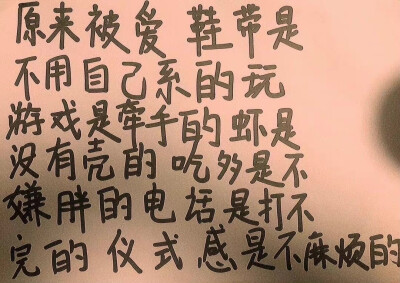 原来被爱 鞋带是
不用自己系的玩
游戏是牵手的虾是
没有壳的吃多是不
嫌胖的电话是打不
完的仪式感是不麻烦的